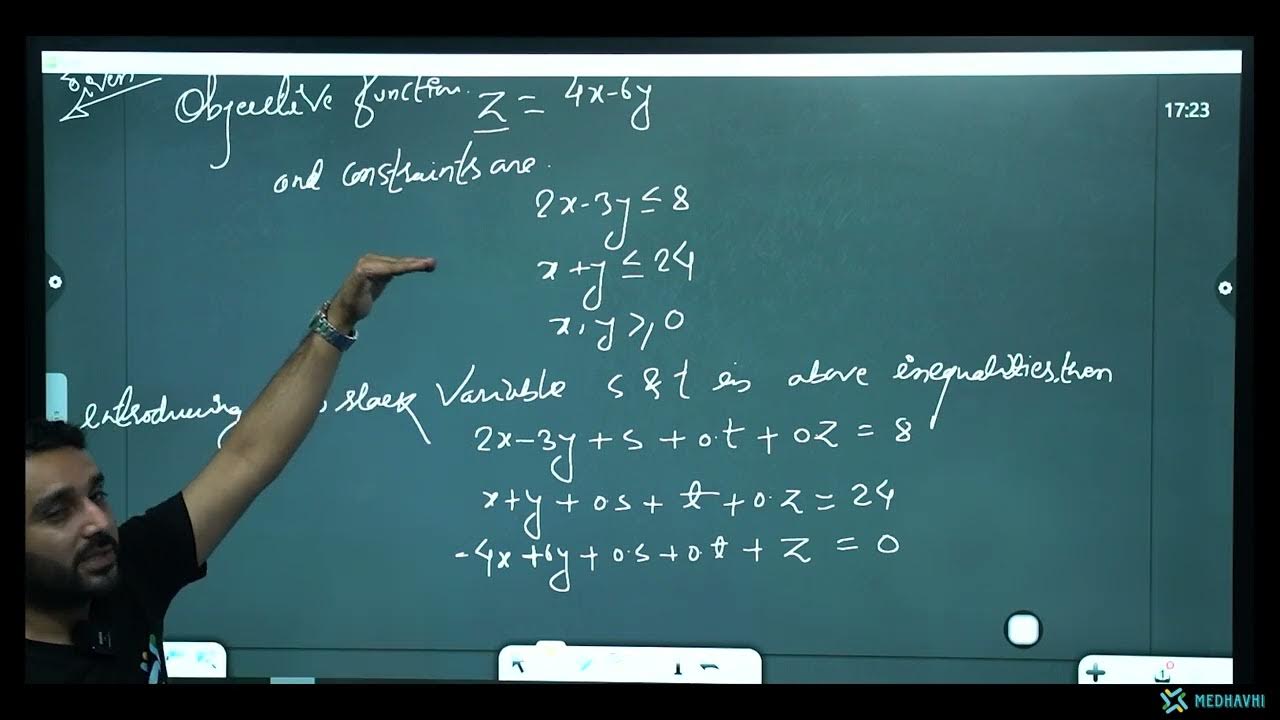 Given
Objective function. Z = 4x-6y
17:23
and constraints are.
2x-3y ≤ 8
x+y ≤ 24
x, y ≥ 0
introducing slack Variable s & t in above inequalities, then
2x-3y + s + 0.t + 0Z = 8
x+y + 0s + t + 0.Z = 24
-4x+6y + 0.s + 0.t + Z = 0
MEDHAVHI